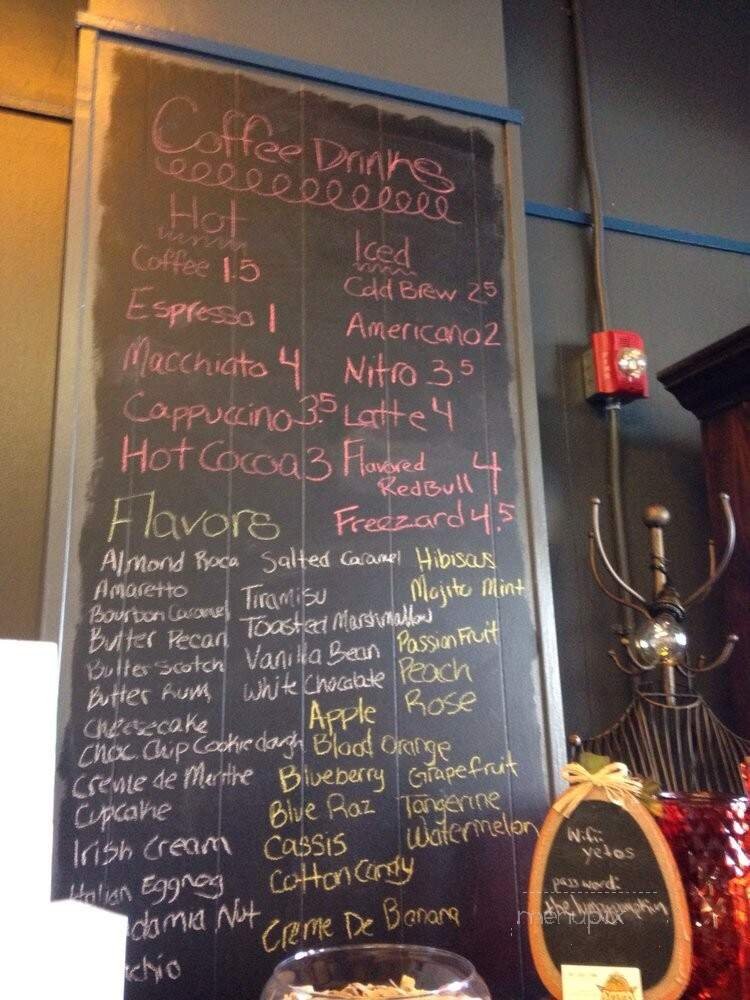 Coffee Drinks
Hot
Coffee 1.5
Espresso 1
Macchiato 4
Cappuccino 3.5
Hot Cocoa 3
Iced
Cold Brew 2.5
Americano 2
Nitro 3.5
Latte 4
Flavored
RedBull 4
Freezard 4.5
Flavors
Almond Roca
Amaretto
Bourbon Caramel
Butter Pecan
Butter Scotch
Butter Rum
Cheesecake
Choc. Chip Cookie dough
Creme de Menthe
Cupcake
Irish Cream
Italian Eggnog
damia Nut
chio
Salted Caramel
Tiramisu
Toasted Marshmallow
Vanilla Bean
White Chocolate
Apple
Blood Orange
Blueberry
Blue Raz
Cassis
Cotton Candy
Creme De Banana
Hibiscus
Mojito Mint
Passion Fruit
Peach
Rose
Grapefruit
Tangerine
Watermelon
Wifi:
password:
menupix